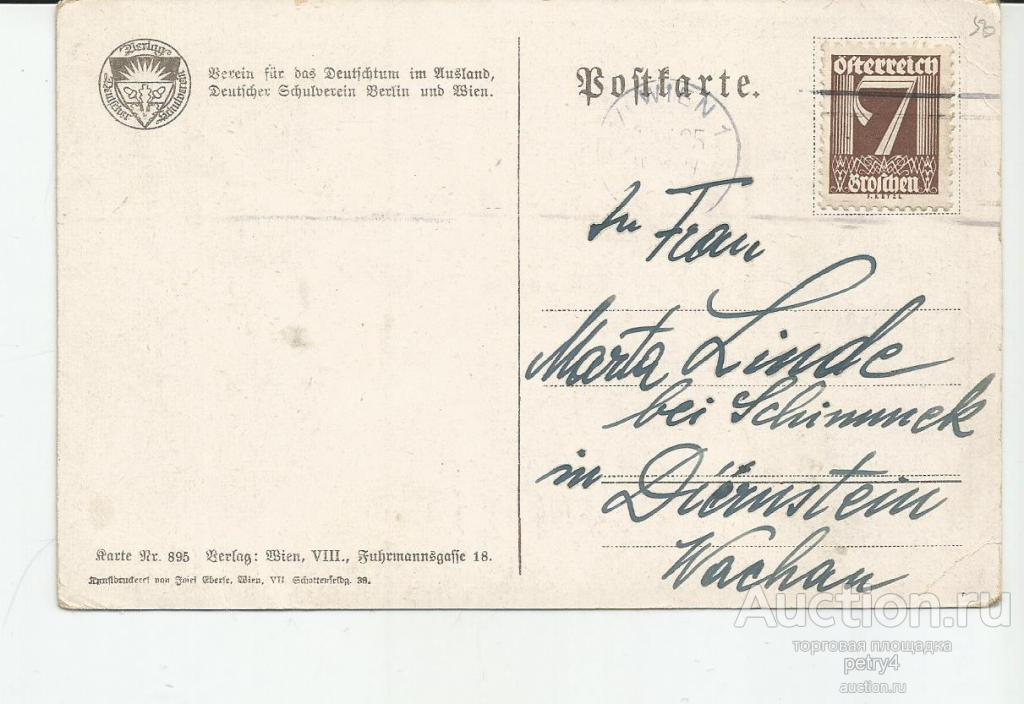 Verlag
Deutscher Schulverein
Verein für das Deutschtum im Ausland,
Deutscher Schulverein Berlin und Wien.
Postkarte.
WIEN 1
25
Österreich
7
Groschen
50
Frau
Marta Linde
bei Schimmeck
in Dürnstein
Wachau
Karte Nr. 895 Verlag: Wien, VIII., Fuhrmannsgasse 18.
Kunstdruckerei von Josef Eberle, Wien, VII Schottenfeldg. 38.
Auction.ru
торговая площадка
petry4
auction.ru